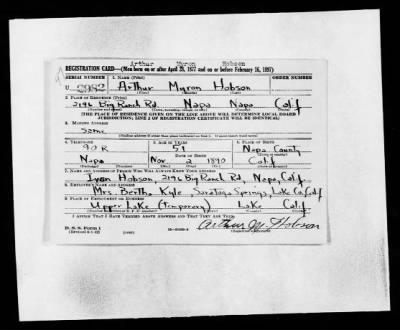 Arthur Myron Hobson
REGISTRATION CARD—(Men born on or after April 28, 1877 and on or before February 16, 1897)
SERIAL NUMBER 1. NAME (Print) ORDER NUMBER
U 2982 Arthur Myron Hobson
2. PLACE OF RESIDENCE (Print)
2196 Big Ranch Rd. Napa Napa Calif
[THE PLACE OF RESIDENCE GIVEN ON THE LINE ABOVE WILL DETERMINE LOCAL BOARD
JURISDICTION; LINE 2 OF REGISTRATION CERTIFICATE WILL BE IDENTICAL]
3. MAILING ADDRESS
Same
[Mailing address if other than place indicated on line 2. If same insert word same]
4. TELEPHONE 5. AGE IN YEARS 6. PLACE OF BIRTH
30 R 51 Napa County
DATE OF BIRTH
Napa Nov. 2 1890 Calif
7. NAME AND ADDRESS OF PERSON WHO WILL ALWAYS KNOW YOUR ADDRESS
Ivan Hobson, 2196 Big Ranch Rd., Napa, Calif.
8. EMPLOYER'S NAME AND ADDRESS
Mrs. Bertha Kyle, Saratoga Springs, Lake Co. Calif
9. PLACE OF EMPLOYMENT OR BUSINESS
Upper Lake (temporary) Lake Calif
I AFFIRM THAT I HAVE VERIFIED ABOVE ANSWERS AND THAT THEY ARE TRUE.
D. S. S. Form 1 Arthur M. Hobson